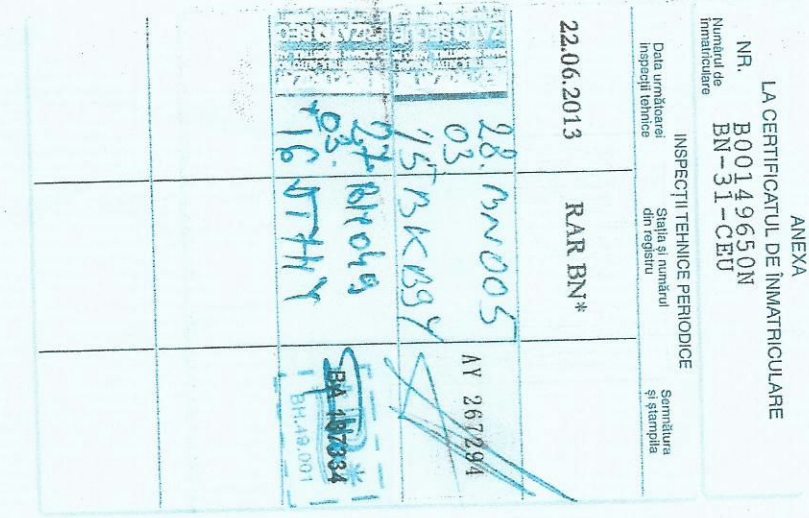 ANEXA
LA CERTIFICATUL DE ÎNMATRICULARE
NR. B00149650N
Numărul de înmatriculare BN-31-CEU
INSPECȚII TEHNICE PERIODICE
Data următoarei inspecții tehnice
Stația și numărul din registru
Semnătura și ștampila
22.06.2013 RAR BN*
28. BN005 AY 267294
03
15 BKB94
27.
03.
16
BA 187334
BH.49.001